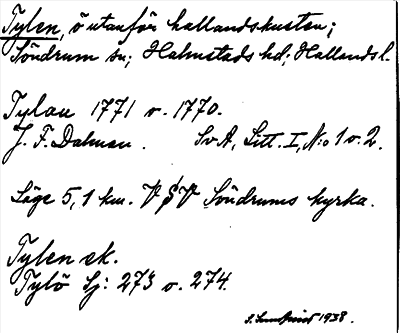 Tylen, ö utanför hallandskusten;
Söndrum sn; Halmstads hd; Hallands l.
Tylau 1771 o. 1770.
J. F. Dalman. SvA, Litt. I, N:o 1 o. 2.
Läge 5,1 km. V Söndrums kyrka.
Tylen ek.
Tylö Sj: 273 o. 274.
1938.